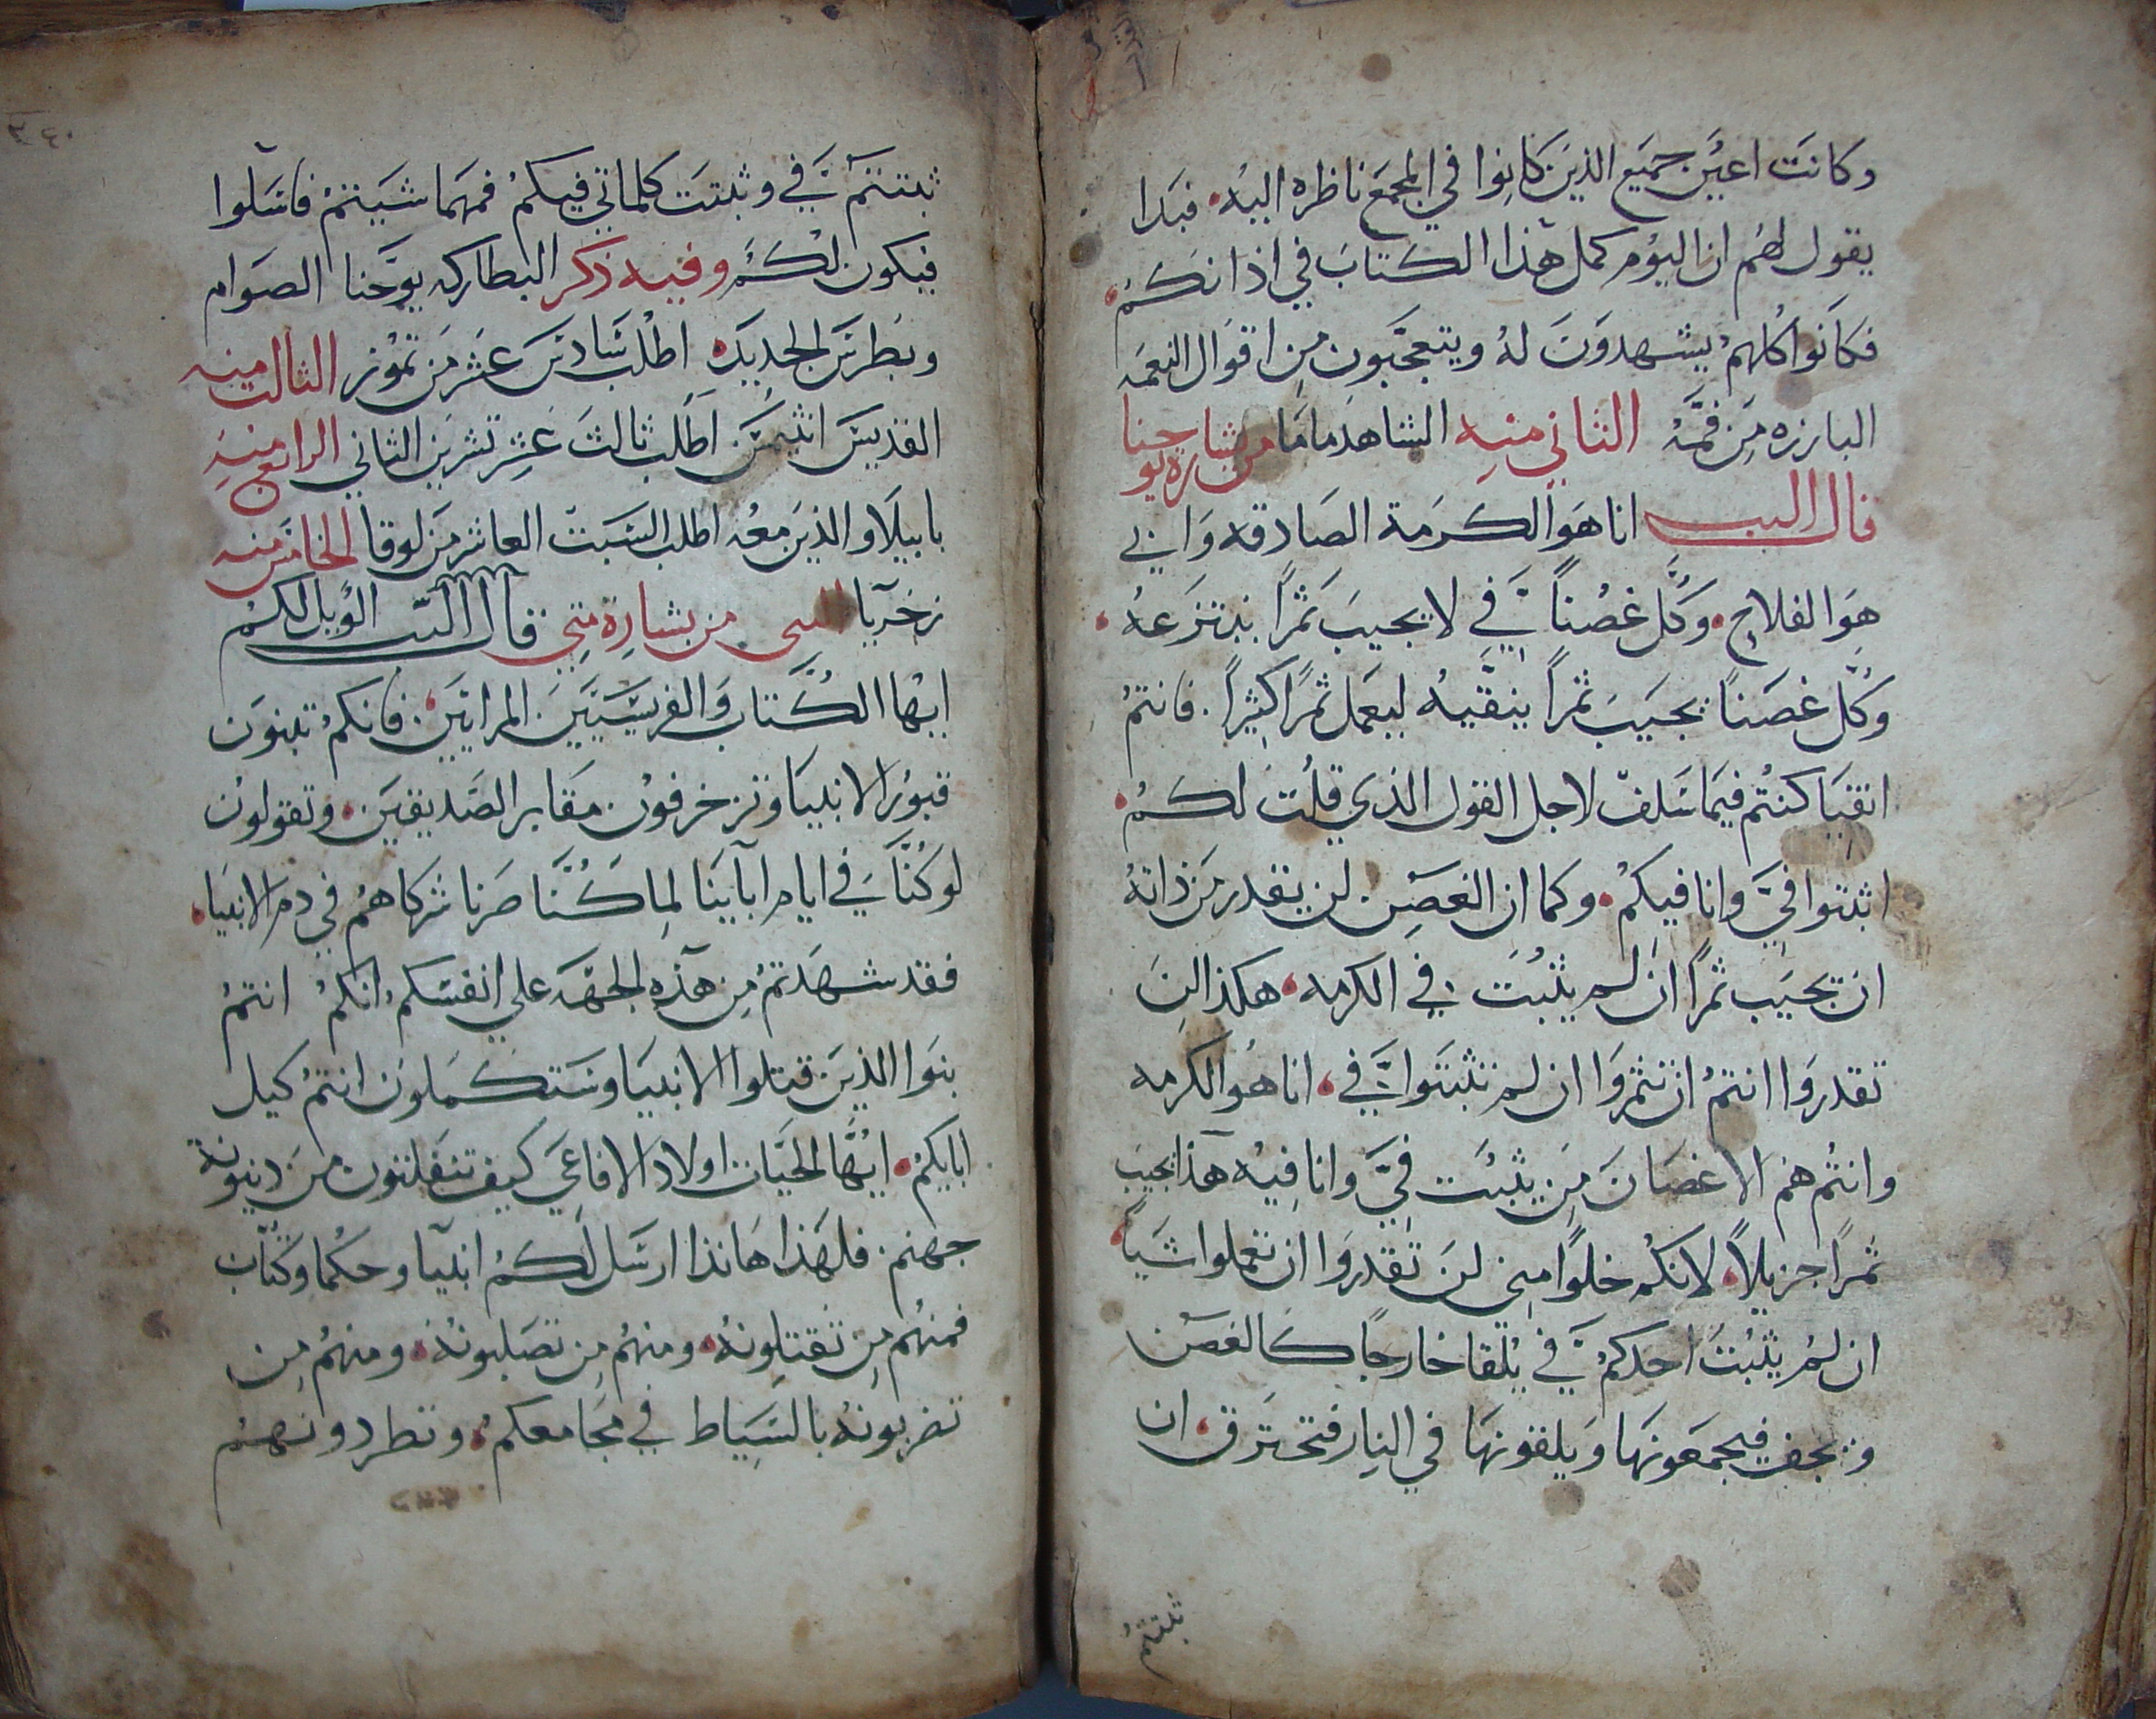 وكانت اعين جميع الذين كانوا في المجمع ناظره اليه فبدا
يقول لهم ان اليوم كمل هذا الكتاب في اذانكم
فكانوا كلهم يشهدون له ويتعجبون من اقوال النعمه
البارزه من فمه الثاني منه الشاهد ماما من بشارة يوحنا
قال الرب انا هو الكرمة الصادقه وابي
هو الفلاح وكل غصناً فيَّ لا يجيب ثمراً ينتزعه
وكل غصناً يجيب ثمراً ينقيه ليعمل ثمراً كثيراً فانتم
انقيا كنتم فيما سلف لاجل القول الذي قلت لكم
اثبتوا فيَّ وانا فيكم وكما ان الغصن لن يقدر من ذاته
ان يجيب ثمراً ان لم يثبت في الكرمه هكذا لن
تقدروا انتم ان تثمروا ان لم تثبتوا فيَّ انا هو الكرمه
وانتم هم الاغصان من يثبت فيَّ وانا فيه هذا يجيب
ثمراً جزيلاً لانكم خلوًا مني لن تقدروا ان تعملوا شياً
ان لم يثبت احدكم فيَّ يلقا خارجاً كالغصن
ويجف فيجمعونها ويلقونها في النار فتحترق ان
ثبتتم
٢٤٠
ثبتتم فيَّ وثبتت كلماتي فيكم فمهما شيتم فاسلوا
فيكون لكم وفيه ذكر البطاركه يوحنا الصوام
وبطرس الجديد اطلب سادس عشر من تموز الثالث منه
القديس انثيمس اطلب ثالث عشر تشرين الثاني الرابع منه
بابيلا والذين معه اطلب السبت العاشر من لوقا الخامس منه
زخريا النبي من بشارة متى قال الرب الويل لكم
ايها الكتاب والفريسيين المرائين فانكم تبنون
قبور الانبيا وتزخرفون مقابر الصديقين وتقولون
لو كنَّا في ايام ابآينا لما كنَّا صرنا شركاهم في دم الانبيا
فقد شهدتم من هذه الجهه على انفسكم انكم انتم
بنوا الذين قتلوا الانبيا وستكملون انتم كيل
ابايكم ايها الحيات اولاد الافاعي كيف تنفلتون من دينونة
جهنم فلهذا هانذا ارسل لكم انبيآ وحكما وكتَّاب
فمنهم من تقتلونه ومنهم من تصلبونه ومنهم من
تضربونه بالسياط في مجامعكم وتطردونهم